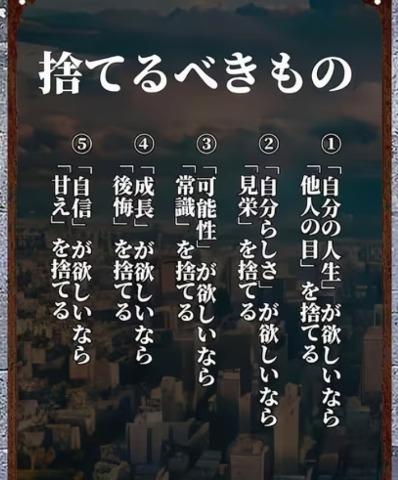 捨てるべきもの
①「自分の人生」が欲しいなら
「他人の目」を捨てる
②「自分らしさ」が欲しいなら
「見栄」を捨てる
③「可能性」が欲しいなら
「常識」を捨てる
④「成長」が欲しいなら
「後悔」を捨てる
⑤「自信」が欲しいなら
「甘え」を捨てる